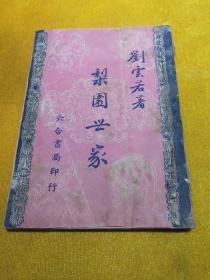 劉雲若著
梨園世家
六合書局印行